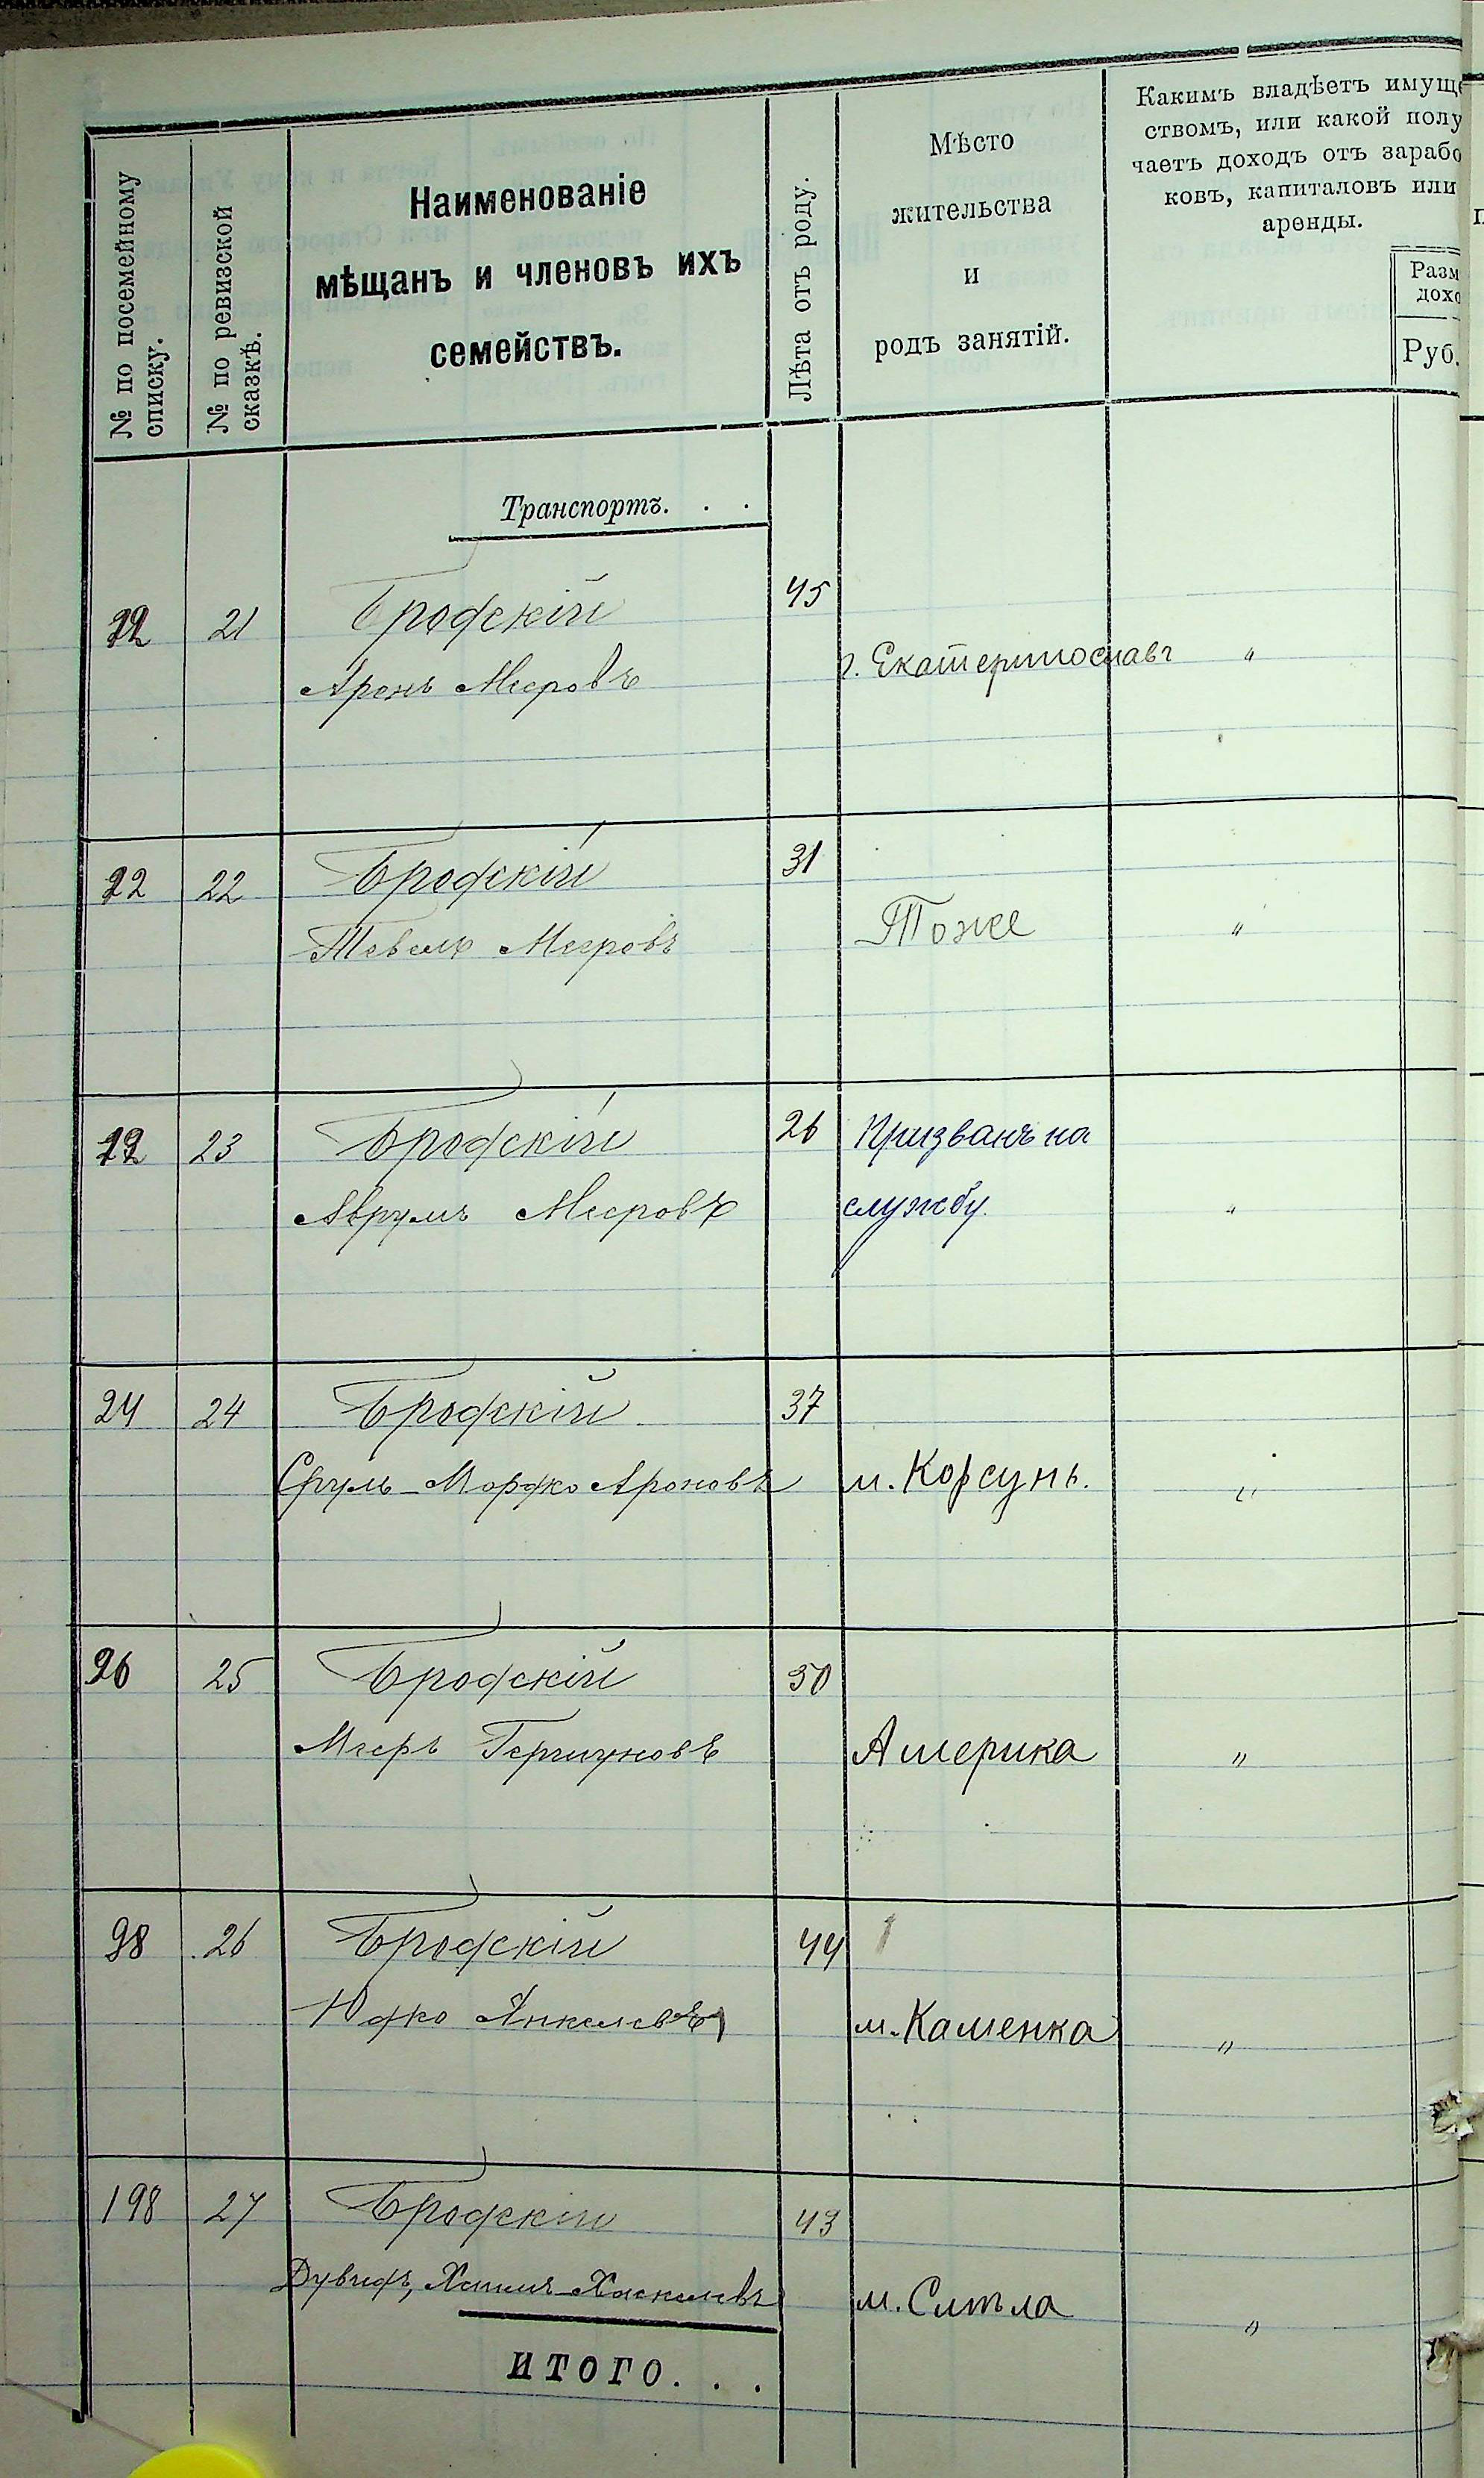 № по посемейному
списку.
№ по ревизской
сказкѣ.
Наименованіе
мѣщанъ и членовъ ихъ
семействъ.
Лѣта отъ роду.
Мѣсто
жительства
и
родъ занятій.
Какимъ владѣетъ имуще
ствомъ, или какой полу
чаетъ доходъ отъ зарабо
ковъ, капиталовъ или
аренды.
Разм
дохо
Руб.
Транспортъ. . .
22 21 Бродскій 45
Аронъ Мееровъ г. Екатеринославъ "
22 22 Бродскій 31
Тевель Мееровъ Тоже "
22 23 Бродскій 26 Призванъ на
Аврумъ Мееровъ службу. "
24 24 Бродскій 37
Сруль-Мордко Ароновъ м. Корсунь. "
26 25 Бродскій 30
Мееръ Гершуновъ Америка "
98 26 Бродскій 44
Юдко Янкелевъ м. Каменка "
198 27 Бродскій 43
Дувидъ, Хаимъ-Хаскелевъ м. Смѣла "
ИТОГО. . .